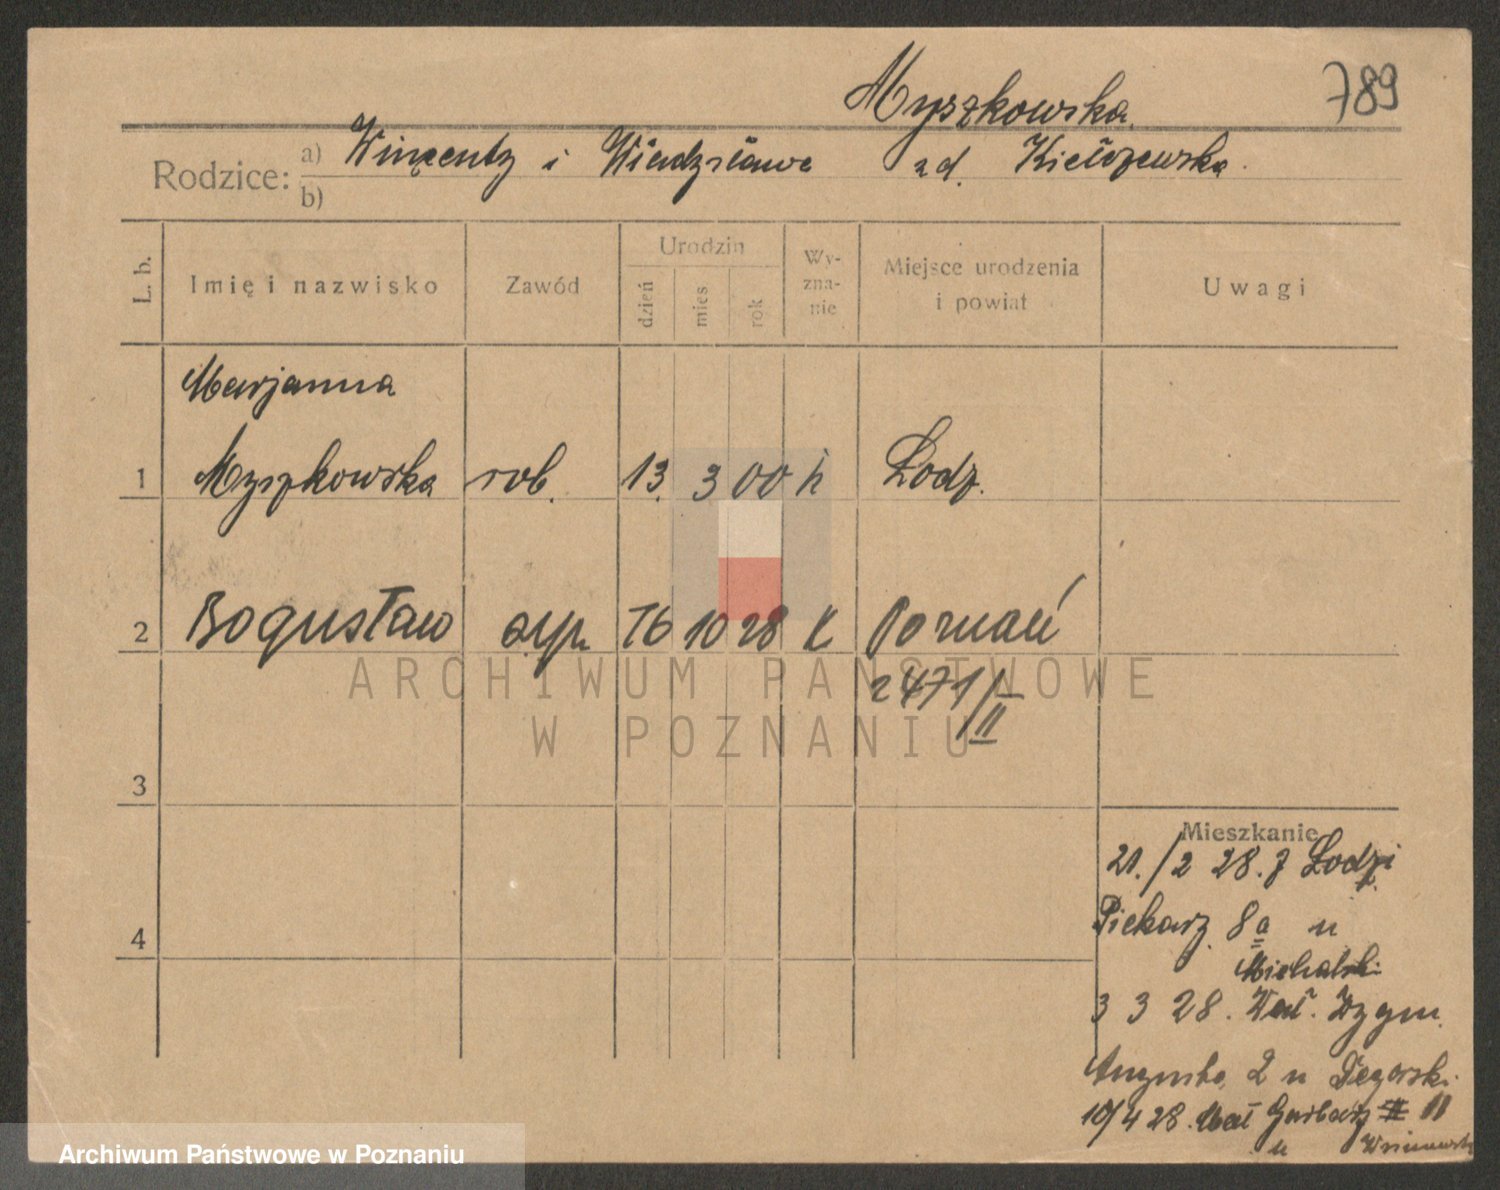 789
Myszkowska
Rodzice:
a) Wincenty i Władysława zd. Kiełczewska
b)
L. b.
Imię i nazwisko
Zawód
Urodzin
dzień
mies
rok
Wy-
zna-
nie
Miejsce urodzenia
i powiat
Uwagi
Marjanna
1 Myszkowska rob. 13 3 00 k Łodz.
2 Bogusław syn 16 10 28 k Poznań
2471/II
3
4
Mieszkanie
21./2 28. z Łodzi
Piekarz 8a u
Michalski
3 3 28. Wał. Zygm.
Augusta 2 u
10/4 28. Mał Garbarz 11
u
ARCHIWUM PAŃSTWOWE
W POZNANIU
Archiwum Państwowe w Poznaniu